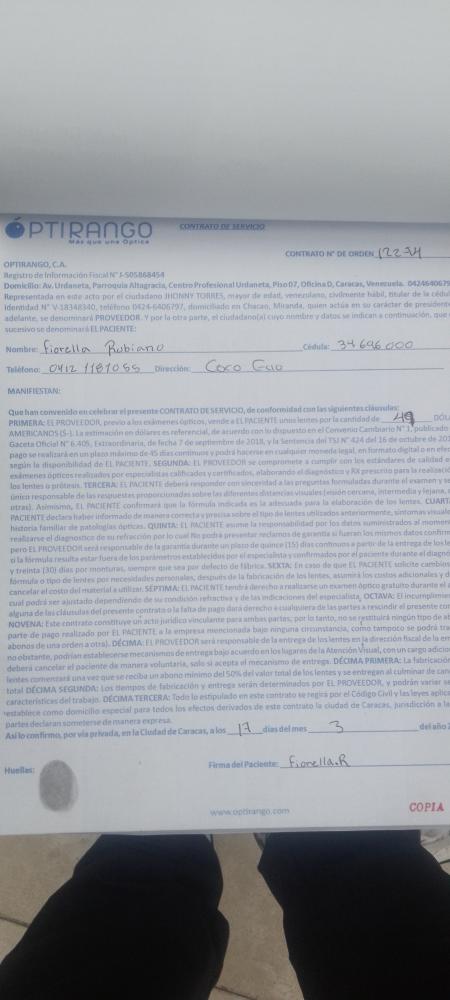 ÓPTIRANGO
Más que una Óptica
CONTRATO DE SERVICIO
CONTRATO N° DE ORDEN 12234
OPTIRANGO, C.A.
Registro de Información Fiscal N° J-505868454
Domicilio: Av. Urdaneta, Parroquia Altagracia, Centro Profesional Urdaneta, Piso 07, Oficina D, Caracas, Venezuela. 0424640679
Representada en este acto por el ciudadano JHONNY TORRES, mayor de edad, venezolano, civilmente hábil, titular de la cédu
Identidad N° V-18348340, teléfono 0424-6406797, domiciliado en Chacao, Miranda, quien actúa en su carácter de president
adelante, se denominará PROVEEDOR. Y por la otra parte, el ciudadano(a) cuyo nombre y datos se indican a continuación, que
sucesivo se denominará EL PACIENTE:
Nombre: Fiorella Rubiano Cédula: 34 696 000
Teléfono: 0412 1181055 Dirección: Coco
MANIFIESTAN:
Que han convenido en celebrar el presente CONTRATO DE SERVICIO, de conformidad con las siguientes cláusulas:
PRIMERA: EL PROVEEDOR, previo a los exámenes ópticos, vende a EL PACIENTE unos lentes por la cantidad de 49 DÓL
AMERICANOS ($-). La estimación en dólares es referencial, de acuerdo con lo dispuesto en el Convenio Cambiario N° 1, publicado
Gaceta Oficial N° 6.405, Extraordinaria, de fecha 7 de septiembre de 2018, y la Sentencia del TSJ N° 424 del 16 de octubre de 20
pago se realizará en un plazo máximo de 45 días continuos y podrá hacerse en cualquier moneda legal, en formato digital o en efe
según la disponibilidad de EL PACIENTE. SEGUNDA: EL PROVEEDOR se compromete a cumplir con los estándares de calidad
exámenes ópticos realizados por especialistas calificados y certificados, elaborando el diagnóstico y RX prescrito para la realizaci
los lentes o prótesis. TERCERA: EL PACIENTE deberá responder con sinceridad a las preguntas formuladas durante el examen y s
único responsable de las respuestas proporcionadas sobre las diferentes distancias visuales (visión cercana, intermedia y lejana,
otras). Asimismo, EL PACIENTE confirmará que la fórmula indicada es la adecuada para la elaboración de los lentes. CUART
PACIENTE declara haber informado de manera correcta y precisa sobre el tipo de lentes utilizados anteriormente, síntomas visual
historia familiar de patologías ópticas. QUINTA: EL PACIENTE asume la responsabilidad por los datos suministrados al momen
realizarse el diagnostico de su refracción por lo cual No podrá presentar reclamos de garantía si fueran los mismos datos confirm
pero EL PROVEEDOR será responsable de la garantía durante un plazo de quince (15) días continuos a partir de la entrega de los le
o la fórmula resulta estar fuera de los parámetros establecidos por el especialista y confirmados por el paciente durante el diagn
y treinta (30) días por monturas, siempre que sea por defecto de fábrica. SEXTA: En caso de que EL PACIENTE solicite cambios
fórmula o tipo de lentes por necesidades personales, después de la fabricación de los lentes, asumirá los costos adicionales y d
cancelar el costo del material a utilizar. SÉPTIMA: EL PACIENTE tendrá derecho a realizarse un examen óptico gratuito durante el
cual podrá ser ajustado dependiendo de su condición refractiva y de las indicaciones del especialista. OCTAVA: El incumplimien
alguna de las cláusulas del presente contrato o la falta de pago dará derecho a cualquiera de las partes a rescindir el presente con
NOVENA: Este contrato constituye un acto jurídico vinculante para ambas partes; por lo tanto, no se restituirá ningún tipo de ab
parte de pago realizado por EL PACIENTE a la empresa mencionada bajo ninguna circunstancia, como tampoco se podrá tra
abonos de una orden a otra). DÉCIMA: EL PROVEEDOR será responsable de la entrega de los lentes en la dirección fiscal de la em
no obstante, podrían establecerse mecanismos de entrega bajo acuerdo en los lugares de la Atención Visual, con un cargo adicio
deberá cancelar el paciente de manera voluntaria, solo si acepta el mecanismo de entrega. DÉCIMA PRIMERA: La fabricació
lentes comenzará una vez que se reciba un abono mínimo del 50% del valor total de los lentes y se entregan al culminar de can
total DÉCIMA SEGUNDA: Los tiempos de fabricación y entrega serán determinados por EL PROVEEDOR, y podrán variar se
características del trabajo. DÉCIMA TERCERA: Todo lo estipulado en este contrato se regirá por el Código Civil y las leyes aplica
establece como domicilio especial para todos los efectos derivados de este contrato la ciudad de Caracas, jurisdicción a la
partes declaran someterse de manera expresa.
Así lo confirmo, por vía privada, en la Ciudad de Caracas, a los 17 días del mes 3 del año 2
Huellas:
Firma del Paciente: Fiorella.R
www.optirango.com
COPIA